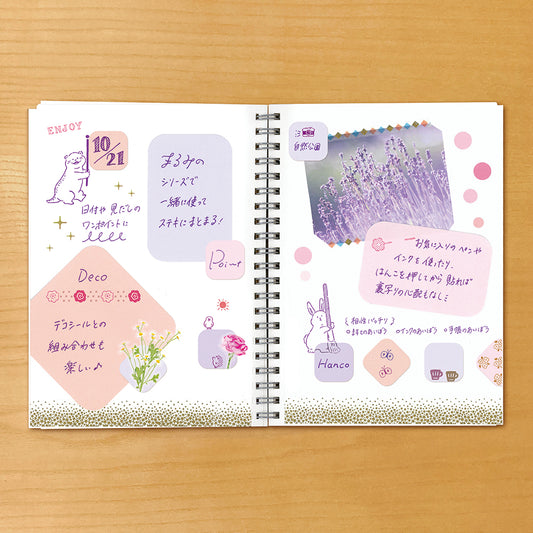 ENJOY
10/21
日付や見だしの
ワンポイントに
まるみの
シリーズで
一緒に使って
ステキにまとまる!
Point
Deco
デコシールとの
組み合わせも
楽しい♪
自然公園
お気に入りのペンや
インクを使ったり、
はんこを押してから貼れば
裏写りの心配もなし
相性バッチリ
Hanco